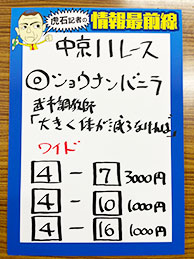 虎石記者の
情報最前線
中京11レース
◎ショウナンバニラ
「大きく体が減らなければ」
ワイド
4 - 7 3000円
4 - 10 1000円
4 - 16 1000円